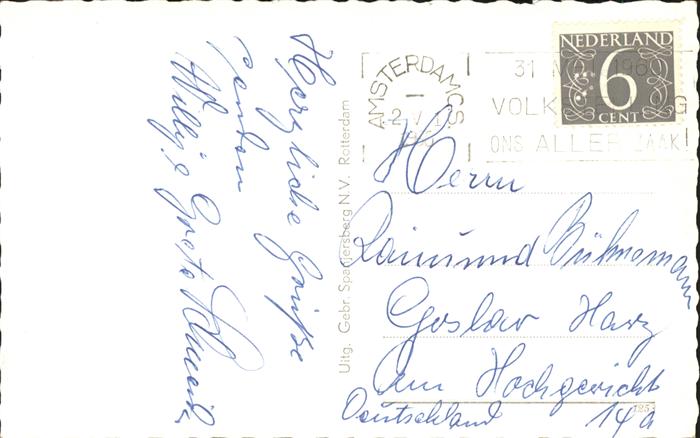 Herzliche Grüße
senden
Willy & Greta
Uitg. Gebr. Spanjersberg N.V. Rotterdam
AMSTERDAM C.S.
31 1960
VOLK
ONS ALLER ZAAK!
NEDERLAND
6
CENT
Herrn
Raimund Bühmemann
Goslar Harz
Am Hochgericht
Deutschland 14a